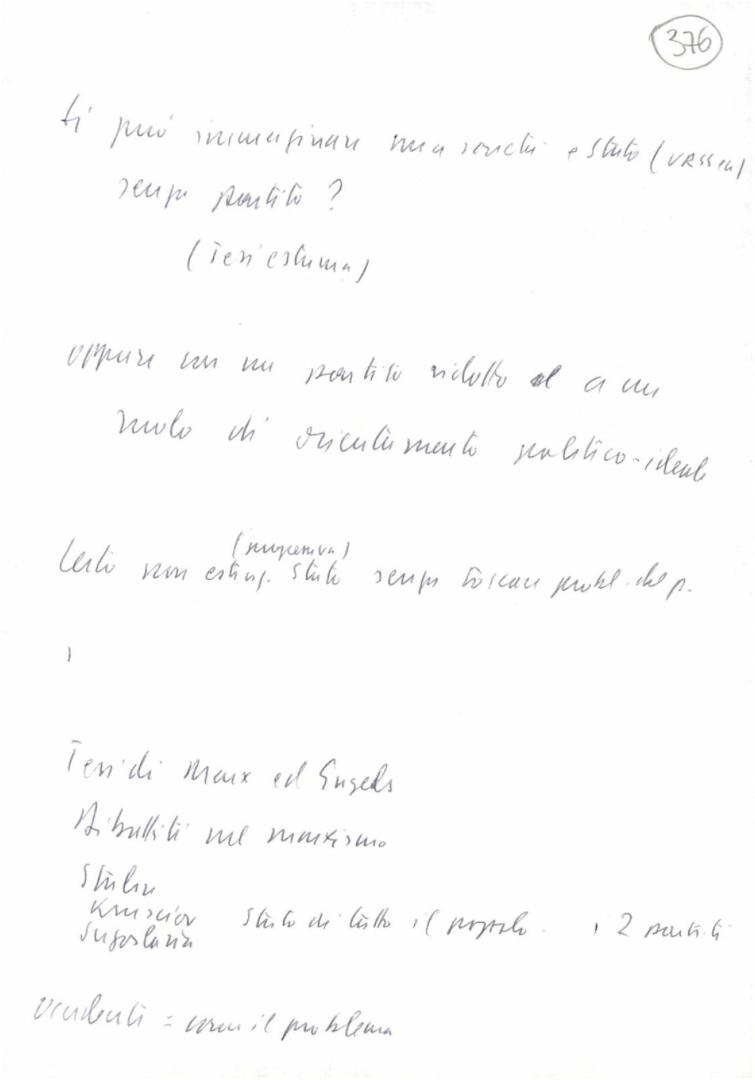 376
si può immaginare una società e Stato (
senza partito?
(Tesi estrema)
oppure con un partito ridotto a un
ruolo di orientamento politico-ideale
Certo non esting. Stato senza toccare probl. del p.
Tesi di Marx ed Engels
Dibattiti nel marxismo
Stalin
Krusciov Stato di tutto il popolo. i 2 partiti
Jugoslavia
occidente = com'è il problema